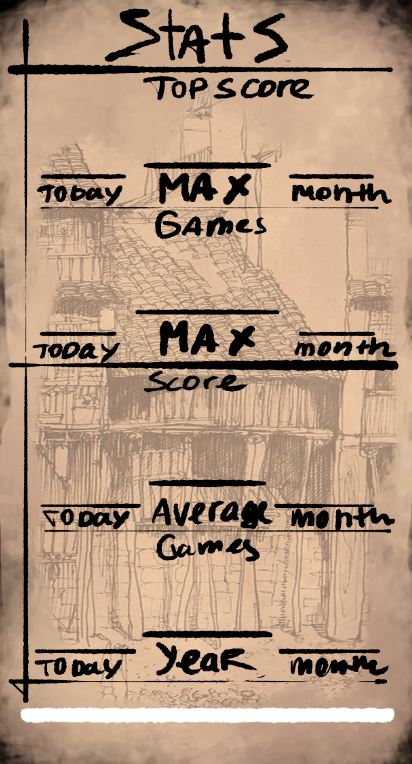 Stats
Top score
Today MAX Month
Games
Today MAX month
Score
Today Average Month
Games
Today Year month